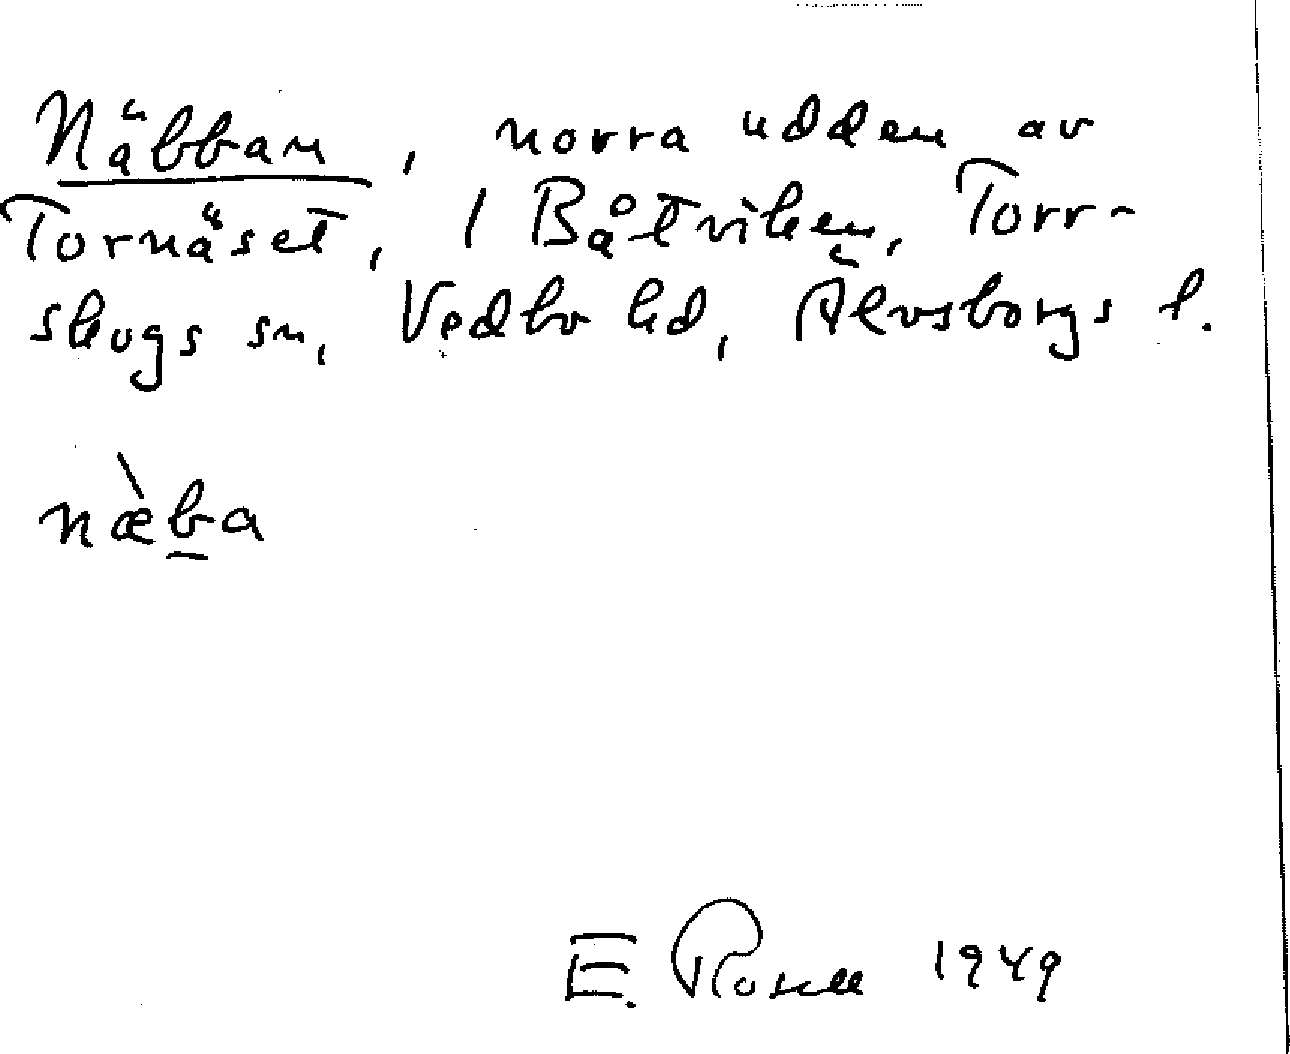 Näbban, norra udden av
Tornäset, i Båtviken, Torr-
skogs sn, Vedbo hd, Älvsborgs l.
næ̀ḇa
E. Rosell 1949